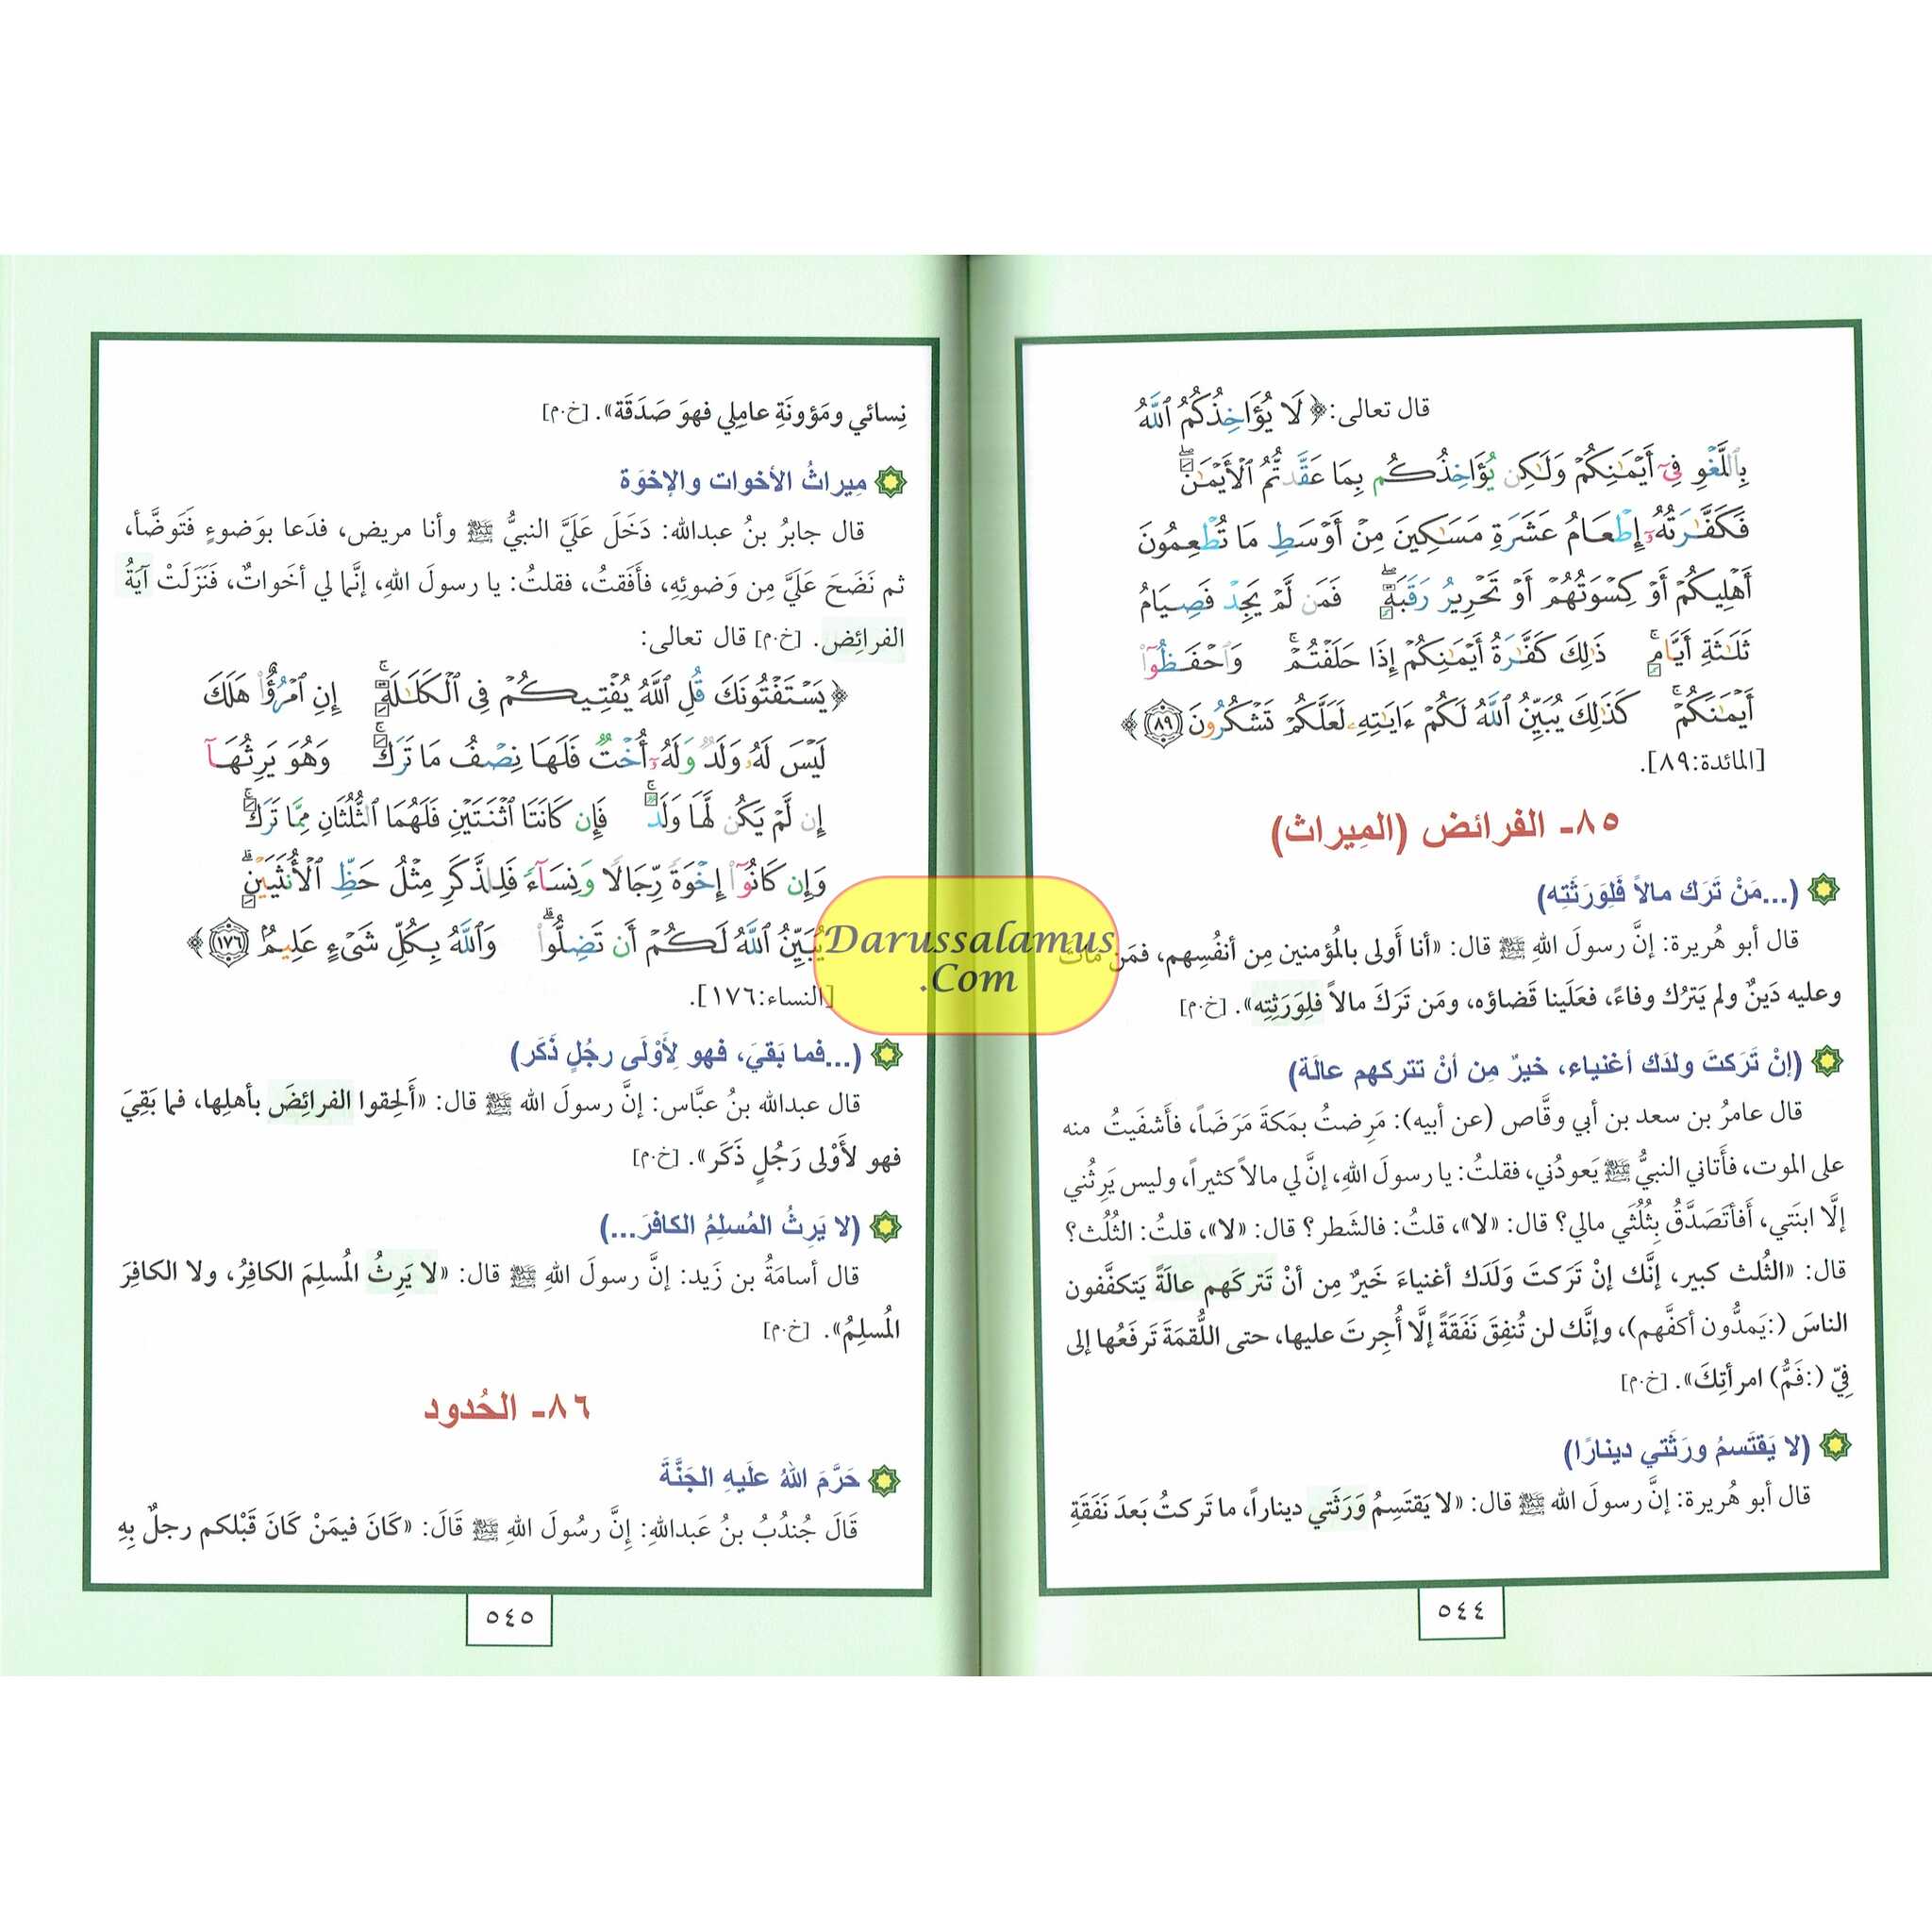 قال تعالى: ﴿ لَا يُؤَاخِذُكُمُ ٱللَّهُ
بِٱللَّغْوِ فِىٓ أَيْمَـٰنِكُمْ وَلَـٰكِن يُؤَاخِذُكُم بِمَا عَقَّدتُّمُ ٱلْأَيْمَـٰنَ ۖ
فَكَفَّـٰرَتُهُۥٓ إِطْعَامُ عَشَرَةِ مَسَـٰكِينَ مِنْ أَوْسَطِ مَا تُطْعِمُونَ
أَهْلِيكُمْ أَوْ كِسْوَتُهُمْ أَوْ تَحْرِيرُ رَقَبَةٍ ۖ فَمَن لَّمْ يَجِدْ فَصِيَامُ
ثَلَـٰثَةِ أَيَّامٍ ۚ ذَٰلِكَ كَفَّـٰرَةُ أَيْمَـٰنِكُمْ إِذَا حَلَفْتُمْ ۚ وَٱحْفَظُوٓا۟
أَيْمَـٰنَكُمْ ۚ كَذَٰلِكَ يُبَيِّنُ ٱللَّهُ لَكُمْ ءَايَـٰتِهِۦ لَعَلَّكُمْ تَشْكُرُونَ ٨٩ ﴾
[المائدة:٨٩].
٨٥- الفرائض (المِيراث)
(...مَنْ تَرَك مالاً فَلِوَرَثَتِه)
قال أبو هُريرة: إنَّ رسولَ اللهِ ﷺ قال: «أنا أَولى بالمُؤمنين مِن أنفُسِهم، فمَن ماتَ
وعليه دَينٌ ولم يَترُك وفاءً، فعَلَينا قَضاؤه، ومَن تَرَكَ مالاً فلِوَرَثِتِه». [خ.م]
(إنْ تَرَكتَ ولدَك أغنياء، خيرٌ مِن أنْ تتركهم عالَة)
قال عامرُ بن سعد بن أبي وقَّاص (عن أبيه): مَرِضتُ بمَكةَ مَرَضَاً، فأَشفَيتُ منه
على الموت، فأَتاني النبيُّ ﷺ يَعودُني، فقلتُ: يا رسولَ اللهِ، إنَّ لي مالاً كثيراً، وليس يَرِثُني
إلَّا ابنَتي، أَفأتَصَدَّقُ بِثُلُثَي مالي؟ قال: «لا»، قلتُ: فالشَطر؟ قال: «لا»، قلتُ: الثُلُث؟
قال: «الثُلث كبير، إنَّك إنْ تَرَكتَ وَلَدَك أغنياءَ خَيرٌ مِن أنْ تَتركَهم عالَةً يَتكفَّفون
الناسَ (:يَمدُّون أكفَّهم)، وإنَّك لن تُنفِقَ نَفَقَةً إلَّا أُجِرتَ عليها، حتى اللُّقمَةَ تَرفَعُها إلى
فِيِّ (:فَمُّ) امرأتِكَ». [خ.م]
(لا يَقتَسمُ ورَثَتي دينارًا)
قال أبو هُريرة: إنَّ رسولَ الله ﷺ قال: «لا يَقتَسِمُ وَرَثَتي ديناراً، ما تَركتُ بَعدَ نَفَقَةِ
٥٤٤
نِسائي ومَؤونَةِ عامِلِي فهوَ صَدَقَة». [خ.م]
مِيراثُ الأخوات والإخوَة
قال جابرُ بنُ عبدالله: دَخَلَ عَلَيَّ النبيُّ ﷺ وأنا مريض، فدَعا بوَضوءٍ فَتَوضَّأ،
ثم نَضَحَ عَلَيَّ مِن وَضوئِهِ، فأَفَقتُ، فقلتُ: يا رسولَ اللهِ، إنَّما لي أخَواتٌ، فَنَزَلَتْ آيَةُ
الفرائِض. [خ.م] قال تعالى:
﴿ يَسْتَفْتُونَكَ قُلِ ٱللَّهُ يُفْتِيكُمْ فِى ٱلْكَلَـٰلَةِ ۚ إِنِ ٱمْرُؤٌا۟ هَلَكَ
لَيْسَ لَهُۥ وَلَدٌ وَلَهُۥٓ أُخْتٌ فَلَهَا نِصْفُ مَا تَرَكَ ۚ وَهُوَ يَرِثُهَآ
إِن لَّمْ يَكُن لَّهَا وَلَدٌ ۚ فَإِن كَانَتَا ٱثْنَتَيْنِ فَلَهُمَا ٱلثُّلُثَانِ مِمَّا تَرَكَ ۚ
وَإِن كَانُوٓا۟ إِخْوَةً رِّجَالًا وَنِسَآءً فَلِلذَّكَرِ مِثْلُ حَظِّ ٱلْأُنثَيَيْنِ ۗ
يُبَيِّنُ ٱللَّهُ لَكُمْ أَن تَضِلُّوا۟ ۗ وَٱللَّهُ بِكُلِّ شَىْءٍ عَلِيمٌۢ ١٧٦ ﴾
[النساء:١٧٦].
(...فما بَقيَ، فهو لِأَوْلَى رجُلٍ ذَكَر)
قال عبدالله بنُ عبَّاس: إنَّ رسولَ الله ﷺ قال: «أَلحِقوا الفرائِضَ بأهلِها، فما بَقِيَ
فهو لأَوْلى رَجُلٍ ذَكَر». [خ.م]
(لا يَرِثُ المُسلِمُ الكافرَ...)
قال أسامَةُ بن زَيد: إنَّ رسولَ اللهِ ﷺ قال: «لا يَرِثُ المُسلِمَ الكافِرُ، ولا الكافِرَ
المُسلِمُ». [خ.م]
٨٦- الحُدود
حَرَّمَ اللهُ علَيهِ الجَنَّةَ
قَالَ جُندُبُ بنُ عَبداللهِ: إنَّ رسُولَ اللهِ ﷺ قَالَ: «كَانَ فيمَنْ كَانَ قَبْلكم رجلٌ بِهِ
٥٤٥
Darussalamus
.Com